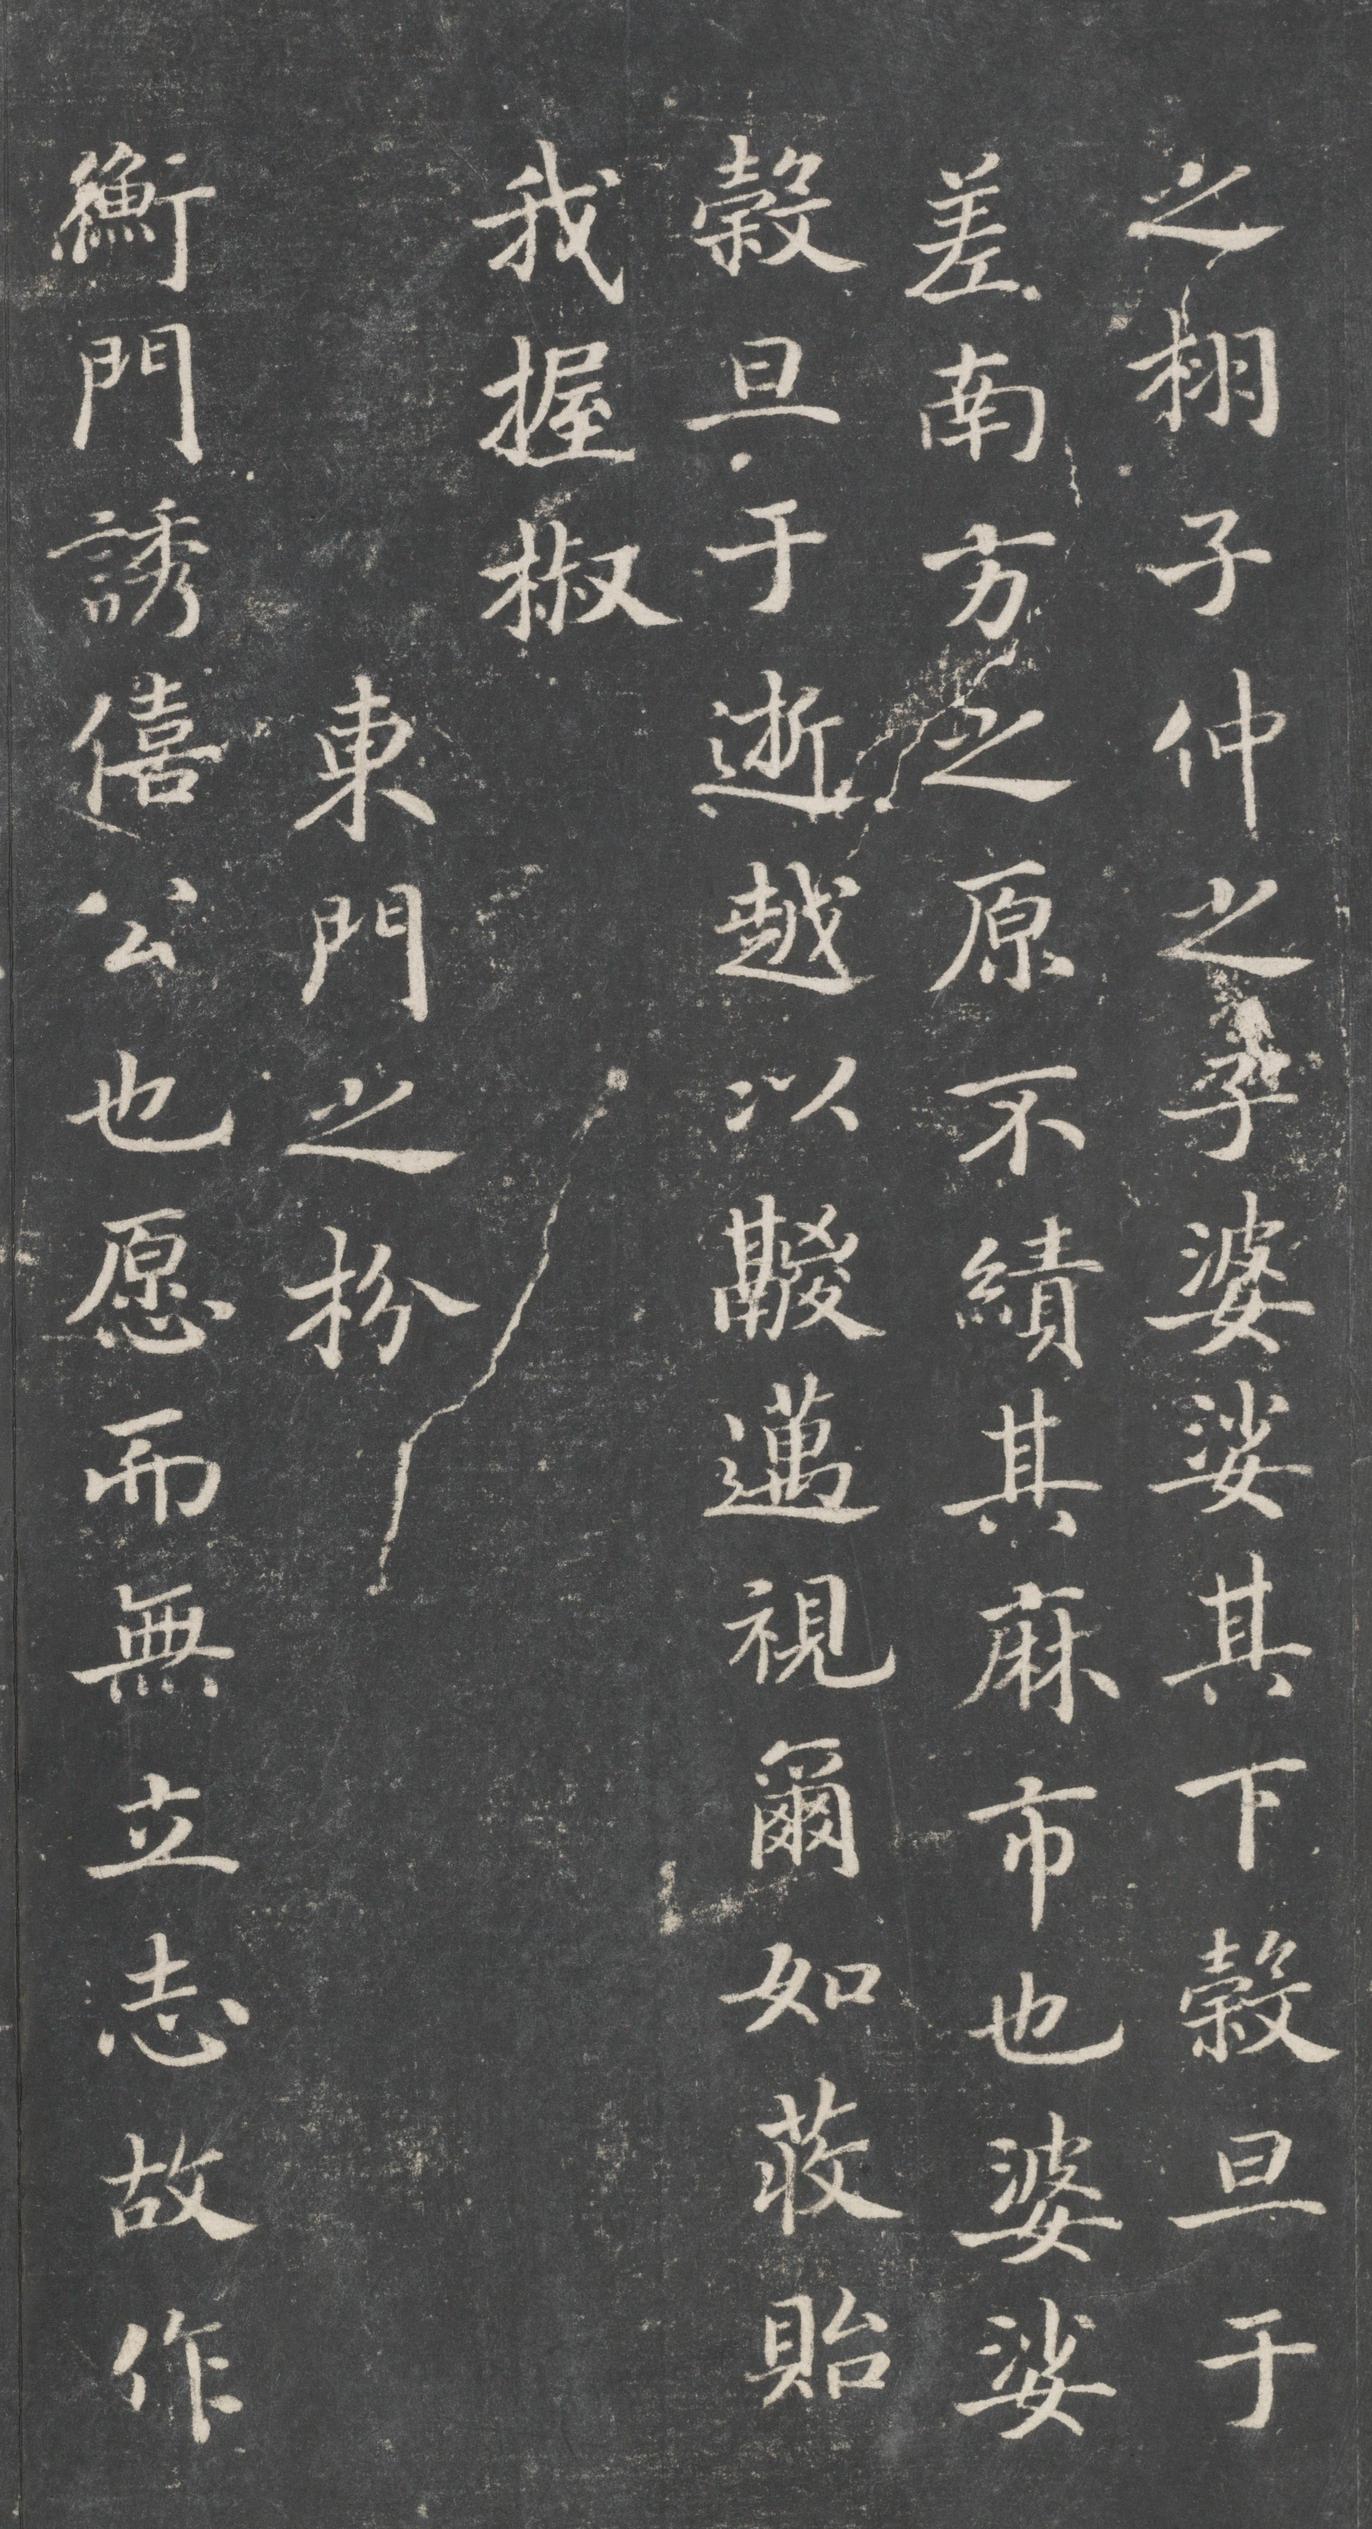 之栩子仲之子婆娑其下榖旦于
差南方之原不績其麻市也婆娑
榖旦于逝越以鬷邁視爾如荍貽
我握椒
東門之枌
衡門誘僖公也愿而無立志故作